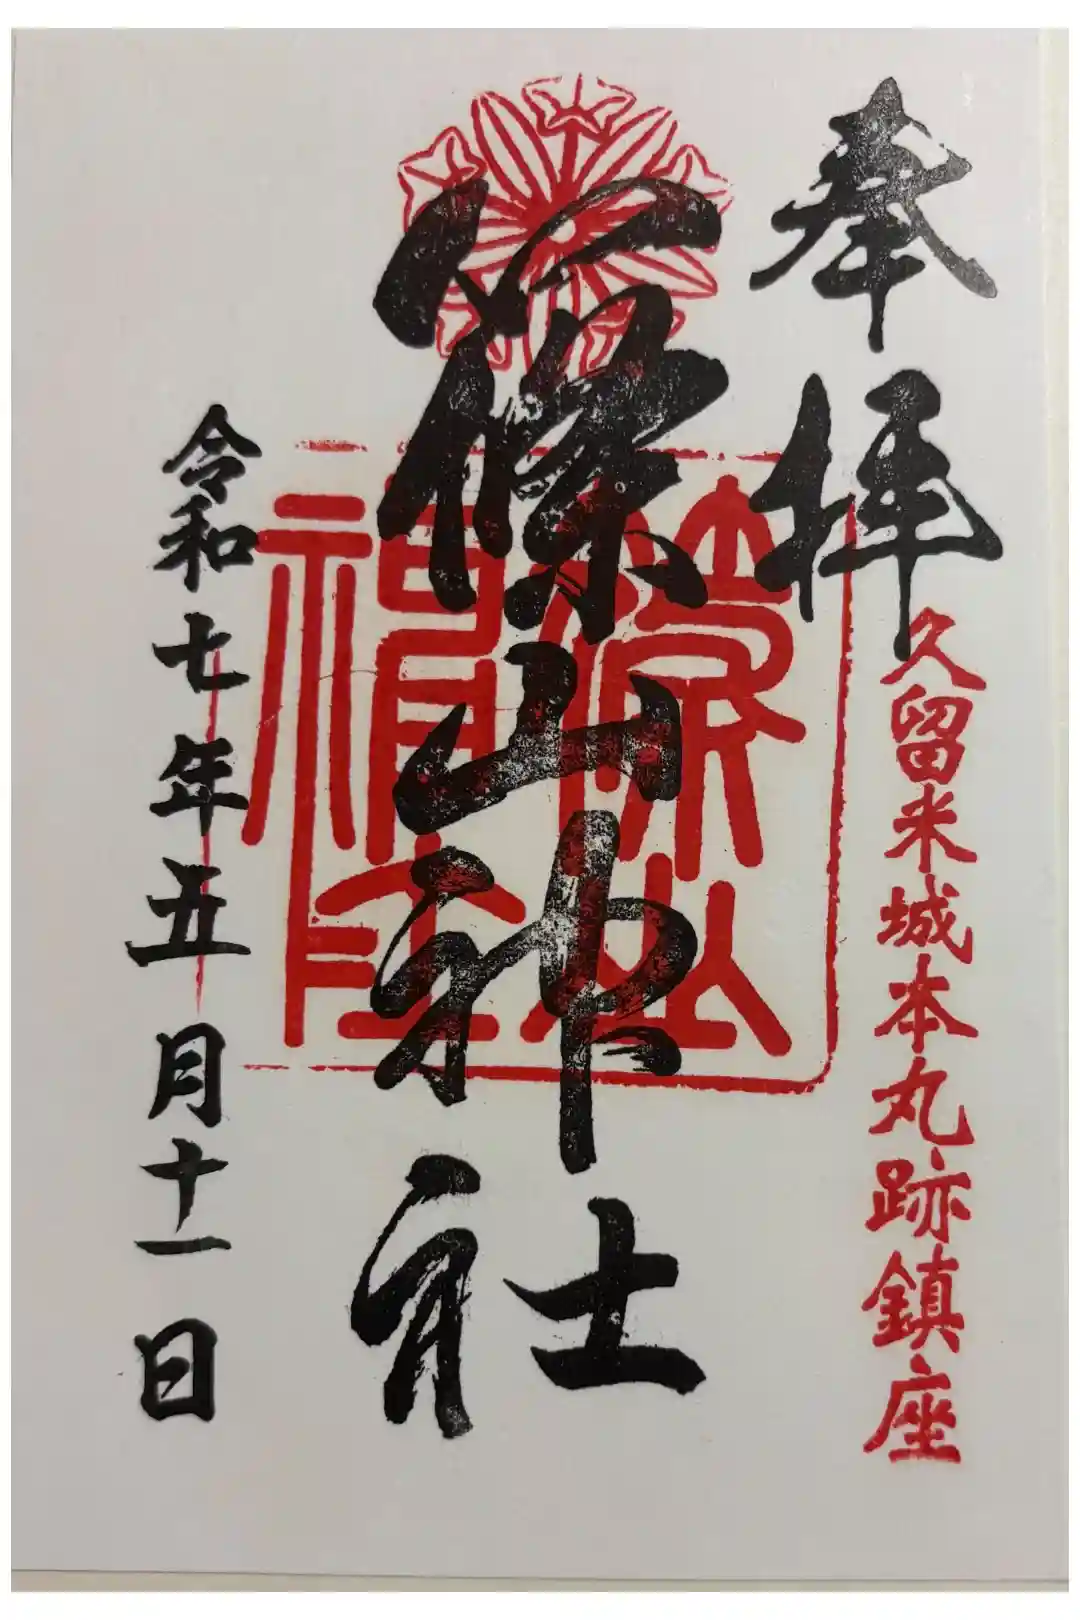 奉拝
久留米城本丸跡鎮座
篠山神社
篠山
神社
令和七年五月十一日